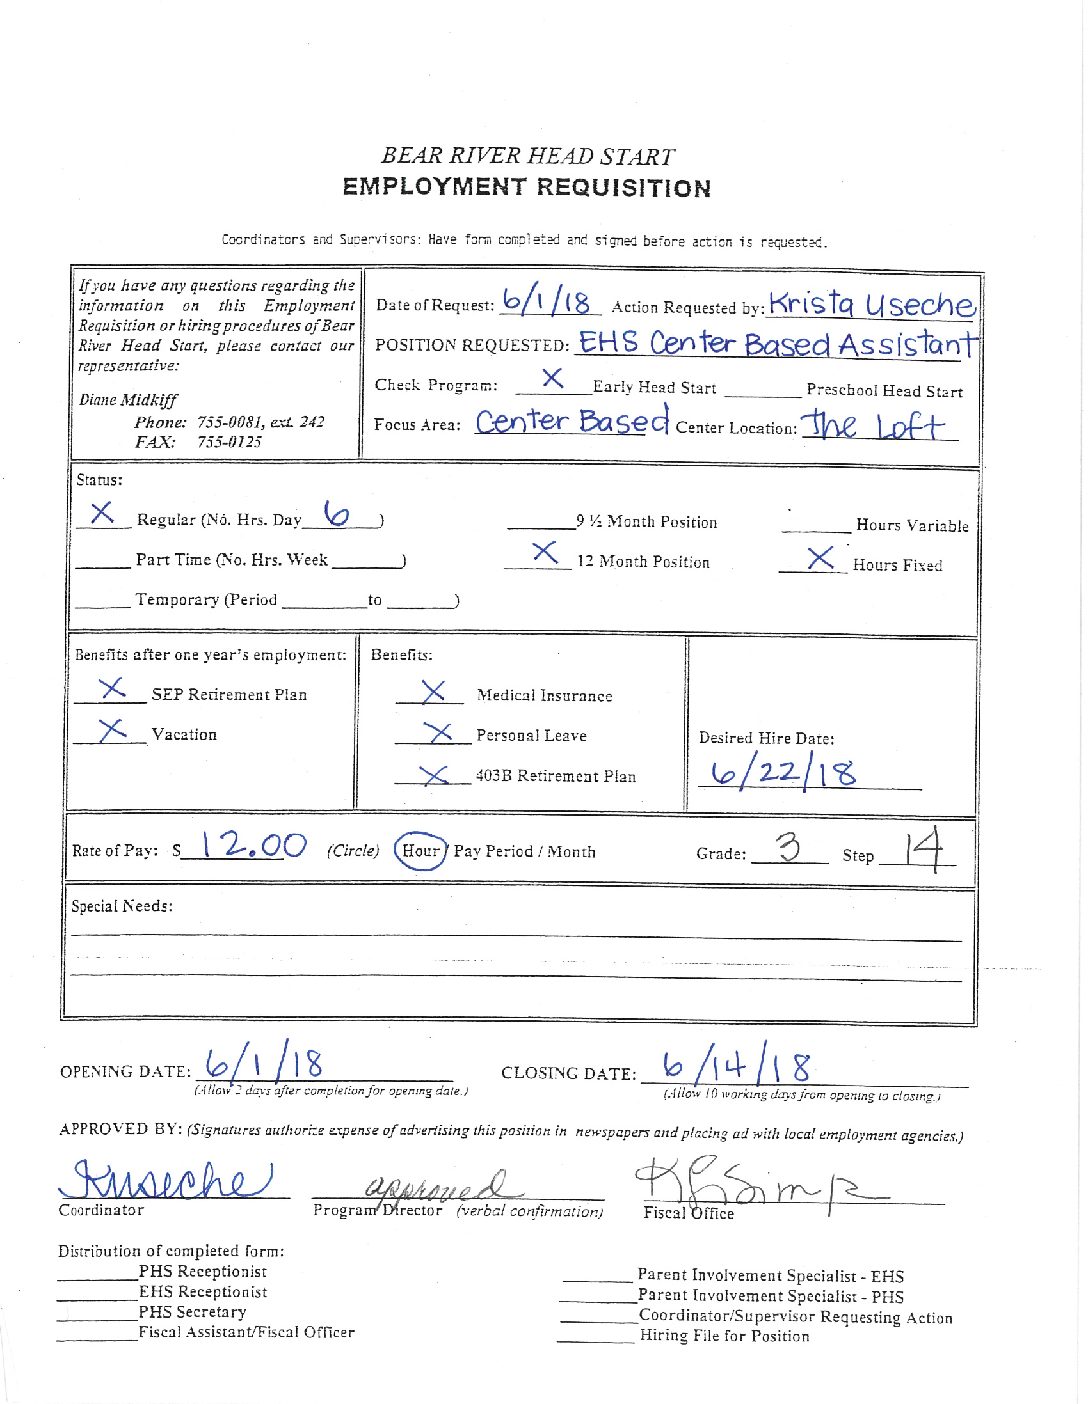 BEAR RIVER HEAD START
EMPLOYMENT REQUISITION
Coordinators and Supervisors: Have form completed and signed before action is requested.
If you have any questions regarding the
information on this Employment
Requisition or hiring procedures of Bear
River Head Start, please contact our
representative:
Diane Midkiff
Phone: 755-0081, ext. 242
FAX: 755-0125
Date of Request: 6/1/18 Action Requested by: Krista Useche
POSITION REQUESTED: EHS Center Based Assistant
Check Program: X Early Head Start ______ Preschool Head Start
Focus Area: Center Based Center Location: The Loft
Status:
X Regular (No. Hrs. Day 6 )
______ 9 ½ Month Position
______ Hours Variable
______ Part Time (No. Hrs. Week ______)
X 12 Month Position
X Hours Fixed
______ Temporary (Period ______ to ______)
Benefits after one year's employment:
X SEP Retirement Plan
X Vacation
Benefits:
X Medical Insurance
X Personal Leave
X 403B Retirement Plan
Desired Hire Date:
6/22/18
Rate of Pay: $ 12.00 (Circle) Hour / Pay Period / Month Grade: 3 Step 14
Special Needs:
OPENING DATE: 6/1/18 CLOSING DATE: 6/14/18
(Allow 2 days after completion for opening date.) (Allow 10 working days from opening to closing.)
APPROVED BY: (Signatures authorize expense of advertising this position in newspapers and placing ad with local employment agencies.)
KUseche approved
Coordinator Program Director (verbal confirmation) Fiscal Office
Distribution of completed form:
______ PHS Receptionist
______ EHS Receptionist
______ PHS Secretary
______ Fiscal Assistant/Fiscal Officer
______ Parent Involvement Specialist - EHS
______ Parent Involvement Specialist - PHS
______ Coordinator/Supervisor Requesting Action
______ Hiring File for Position